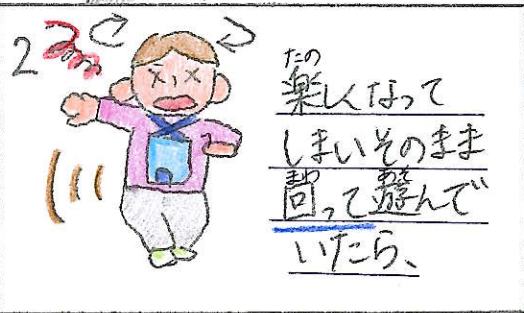 2
楽しくなって
しまいそのまま
回って遊んで
いたら、